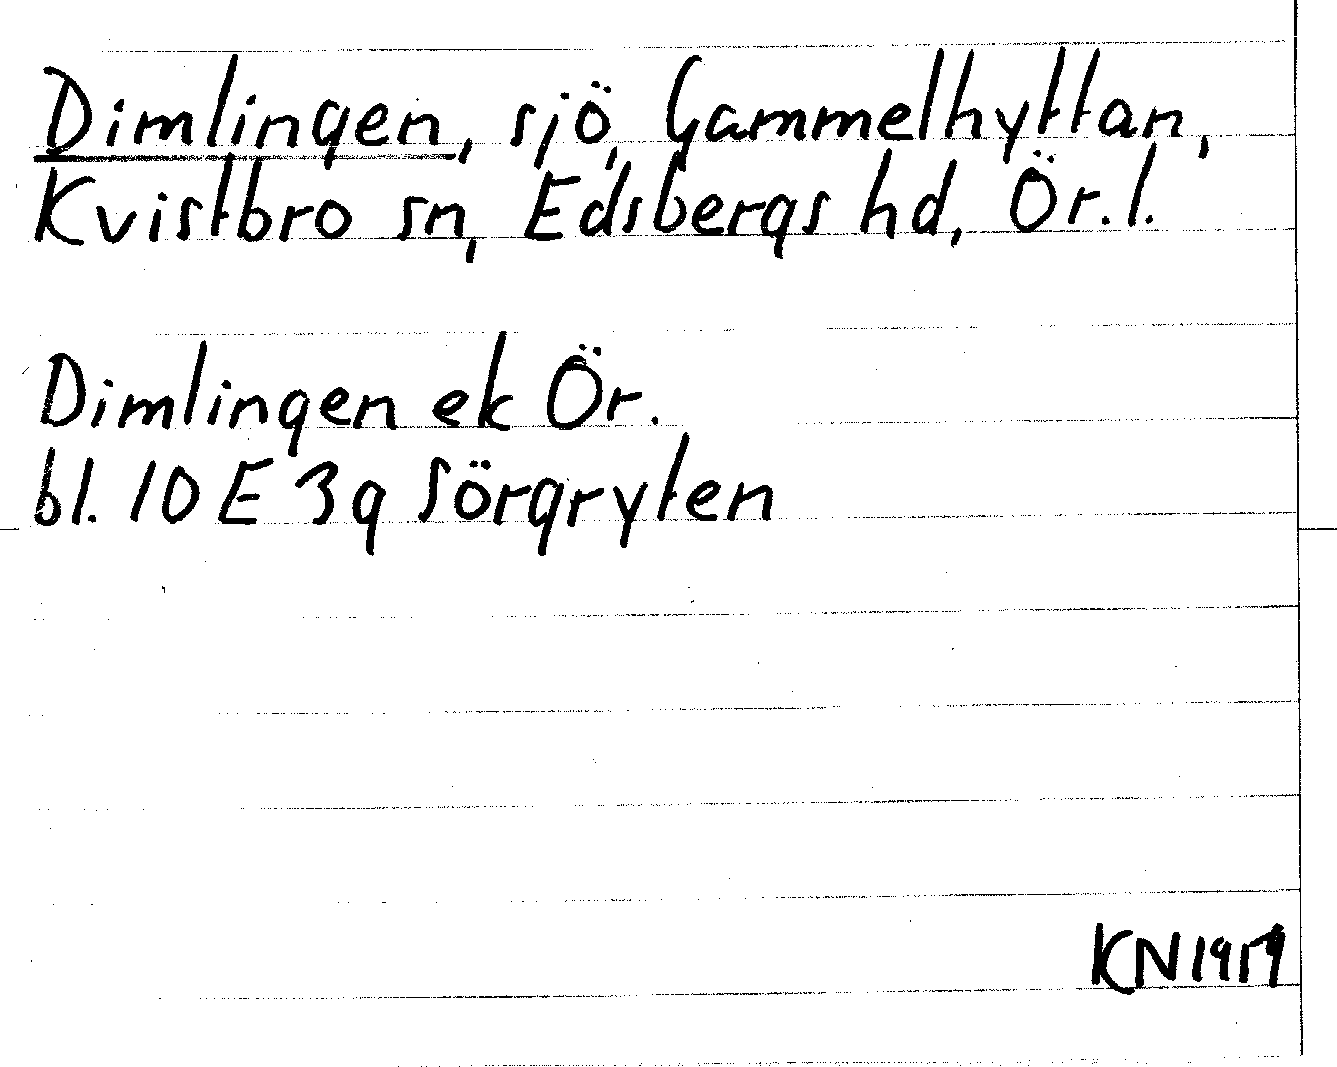 Dimlingen, sjö, Gammelhyttan,
Kvistbro sn, Edsbergs hd, Ör. l.
Dimlingen ek Ör.
bl. 10 E 3g Sörgryten
KN